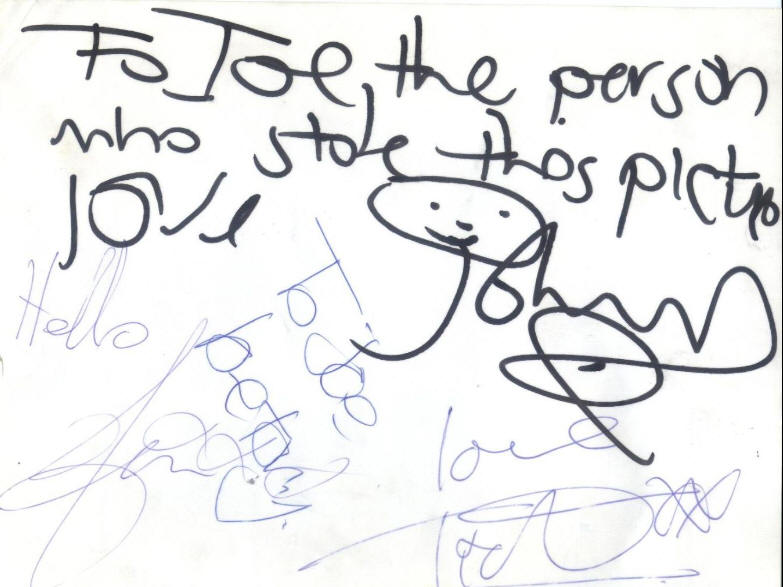 To Joe, the person
who stole this pictu
love
John
Hello
To Joe
love